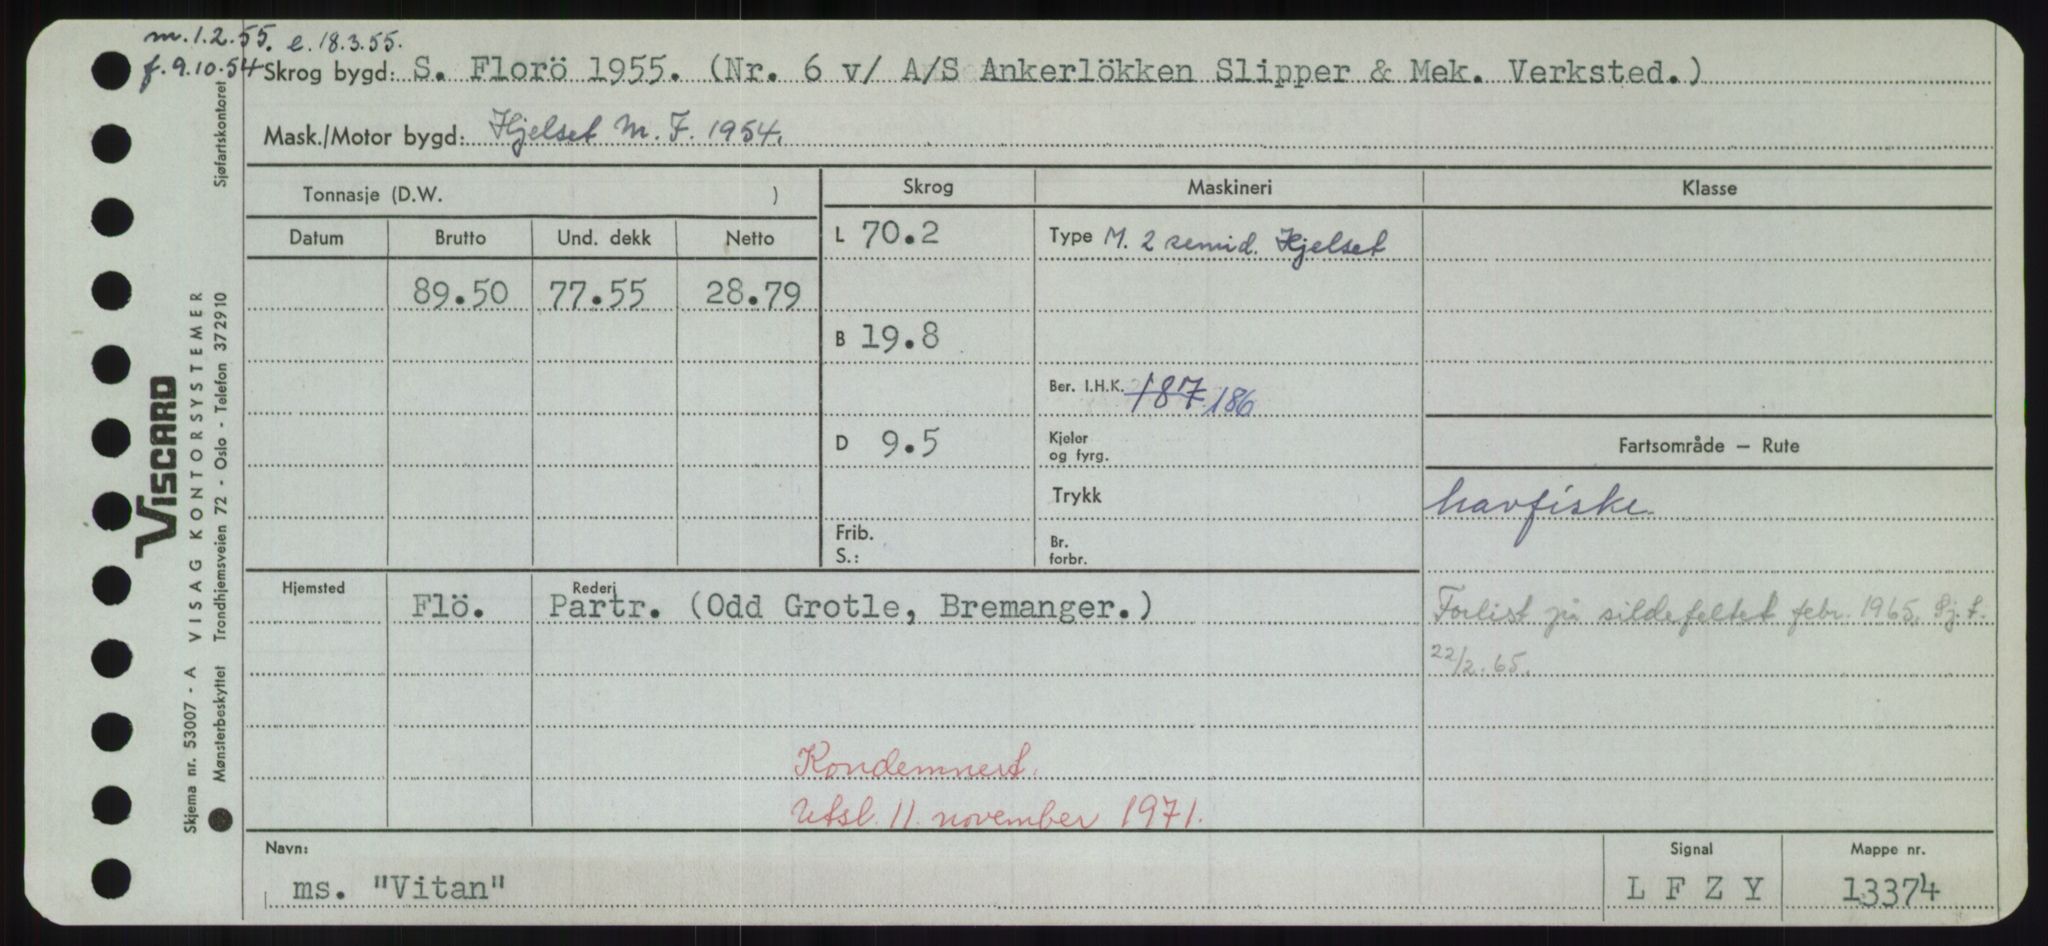 m. 1.2.55. e. 18.3.55.
f. 9.10.54 Skrog bygd: S. Florö 1955. (Nr. 6 v/ A/S Ankerlökken Slipper & Mek. Verksted.)
Mask./Motor bygd: Hjelset M. F. 1954.
Tonnasje (D.W. )
Skrog
Maskineri
Klasse
Datum
Brutto
Und. dekk
Netto
L 70.2
Type M. 2 semid. Hjelset
89.50
77.55
28.79
B 19.8
Ber. I.H.K. 187 186
D 9.5
Kjeler
og fyrg.
Fartsområde — Rute
Trykk
havfiske.
Frib.
S.:
Br.
forbr.
Hjemsted
Flö.
Rederi
Partr. (Odd Grotle, Bremanger.)
Forlist på sildefeltet febr. 1965. Sj. t.
22/2.65.
Kondemnert.
Utsl. 11. november 1971.
Navn:
ms. "Vitan"
Signal
L F Z Y
Mappe nr.
13374
VISCARD
VISAG KONTORSYSTEMER
Skjema nr. 53007 - A
Mønsterbeskyttet Trondhjemsveien 72 - Oslo - Telefon 372910
Sjøfartskontoret